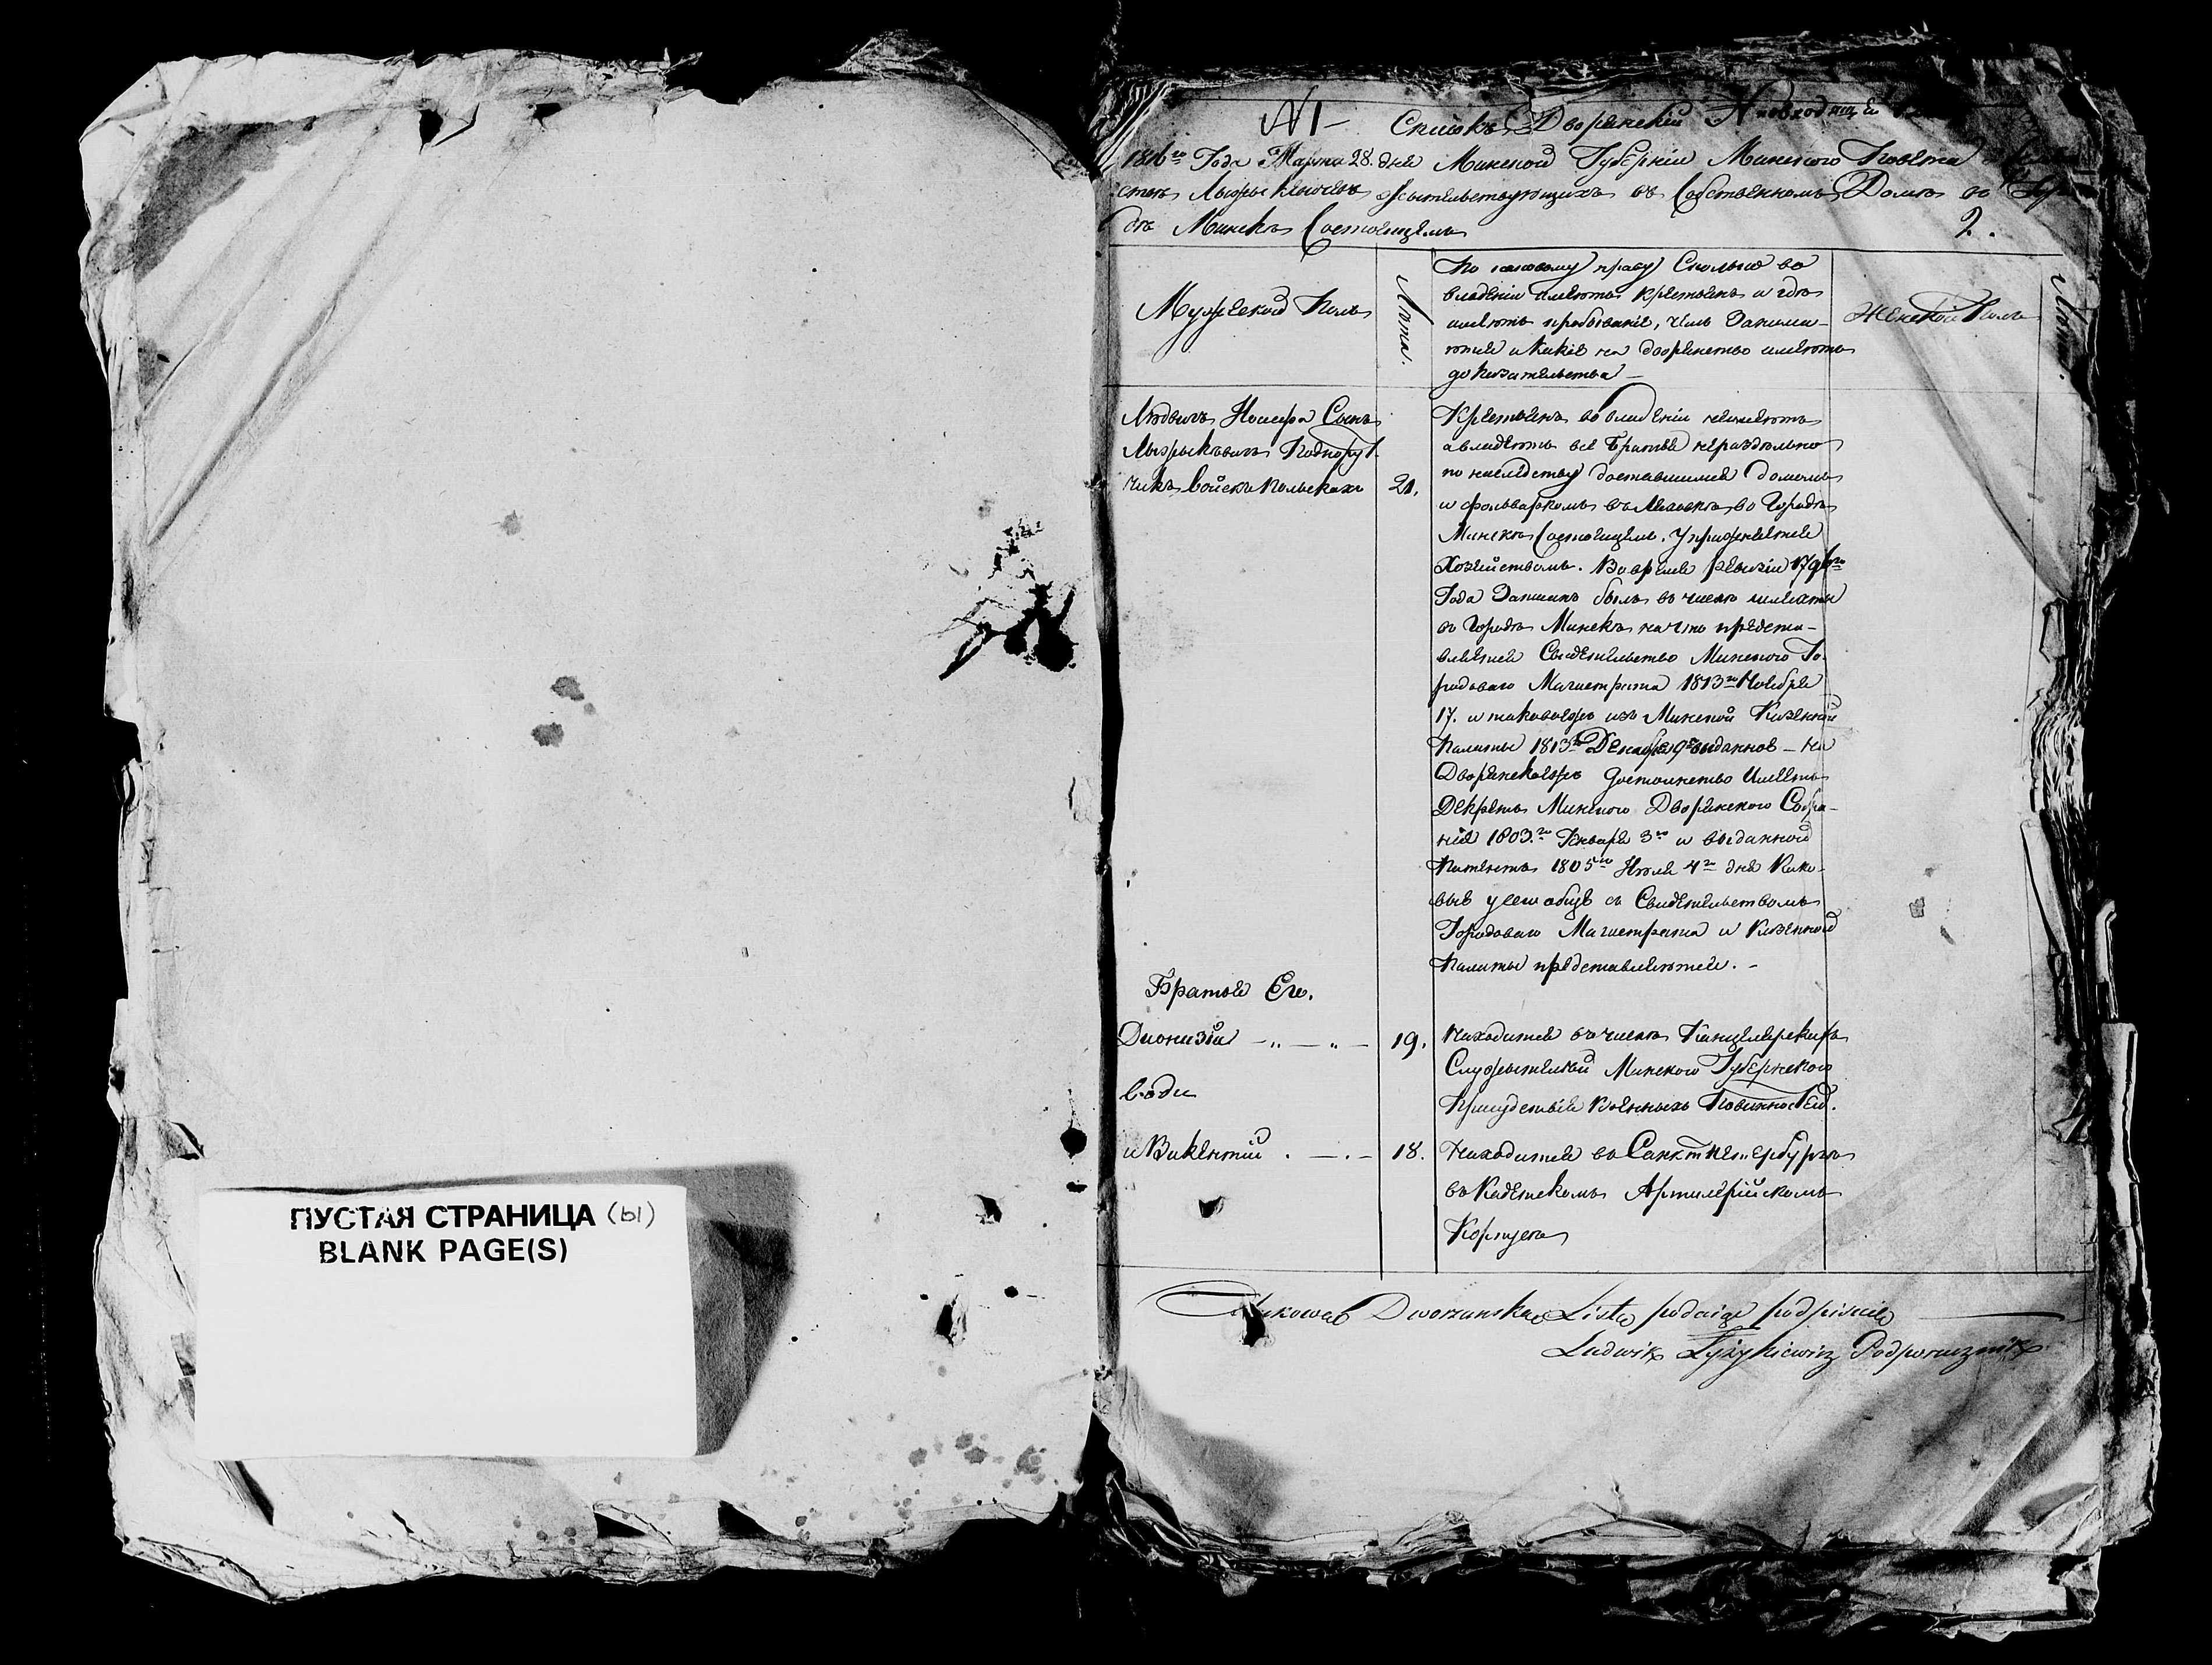 ПУСТАЯ СТРАНИЦА (ы)
BLANK PAGE(S)
№ 1 Списокъ Дворянскій
1816го Года Марта 28 дня Минской Губерніи Минского Повета
жительствующихъ въ Собственномъ Доме въ
де Минскъ Состоящемъ
2.
Мужеской Полъ
Лѣта.
По какому праву Сколько во
владеніи имеютъ крестьянъ и где
имеютъ пребываніе, чемъ Занима-
ются и какіе на дворянство имеютъ
доказательства
Женской Полъ
Лѣта.
Людвигъ Іосифа Сынъ
Лыжыкевичъ Подпору-
чикъ Войскъ Польскихъ
21.
Крестьянъ во владеніи неимеютъ
авладеютъ все Братья нераздельно
по наследству доставшимся домомъ
и фольваркомъ въ во Городе
Минске Состоящемъ. Упражняется
Хозяйствомъ. Во время Ревизіи
Года Записанъ былъ въ число шляхты
въ Городе Минскъ на что предста-
вляется Свидетельство Минского Го-
родоваго Магистрата 1813го Ноября
17. и таковоежъ изъ Минской Казенной
Палаты 1813го Декабря 9го выданное – на
Дворянскоежъ достоинство Имеетъ
Декретъ Минского Дворянского Собра-
нія 1803го Января 3го и выданной
Патентъ 1805го Июля 4го дня Како-
выя съ Свидетельствомъ
Городоваго Магистрата и Казенной
Палаты представляются. –
Братья Его.
Дионизій – „ – „ –
19.
Находится въ числе Канцелярскихъ
Служителей Минского Губернского
Присудствія Военныхъ Повинностей.
и Викентій . – . –
18.
Находится въ Санктпетербурге
въ Кадетскомъ Артилерійскомъ
Корпусе
Dworzanska Lista podaiąc podpisuię
Ludwik Łyżykiewicz Podporucznik